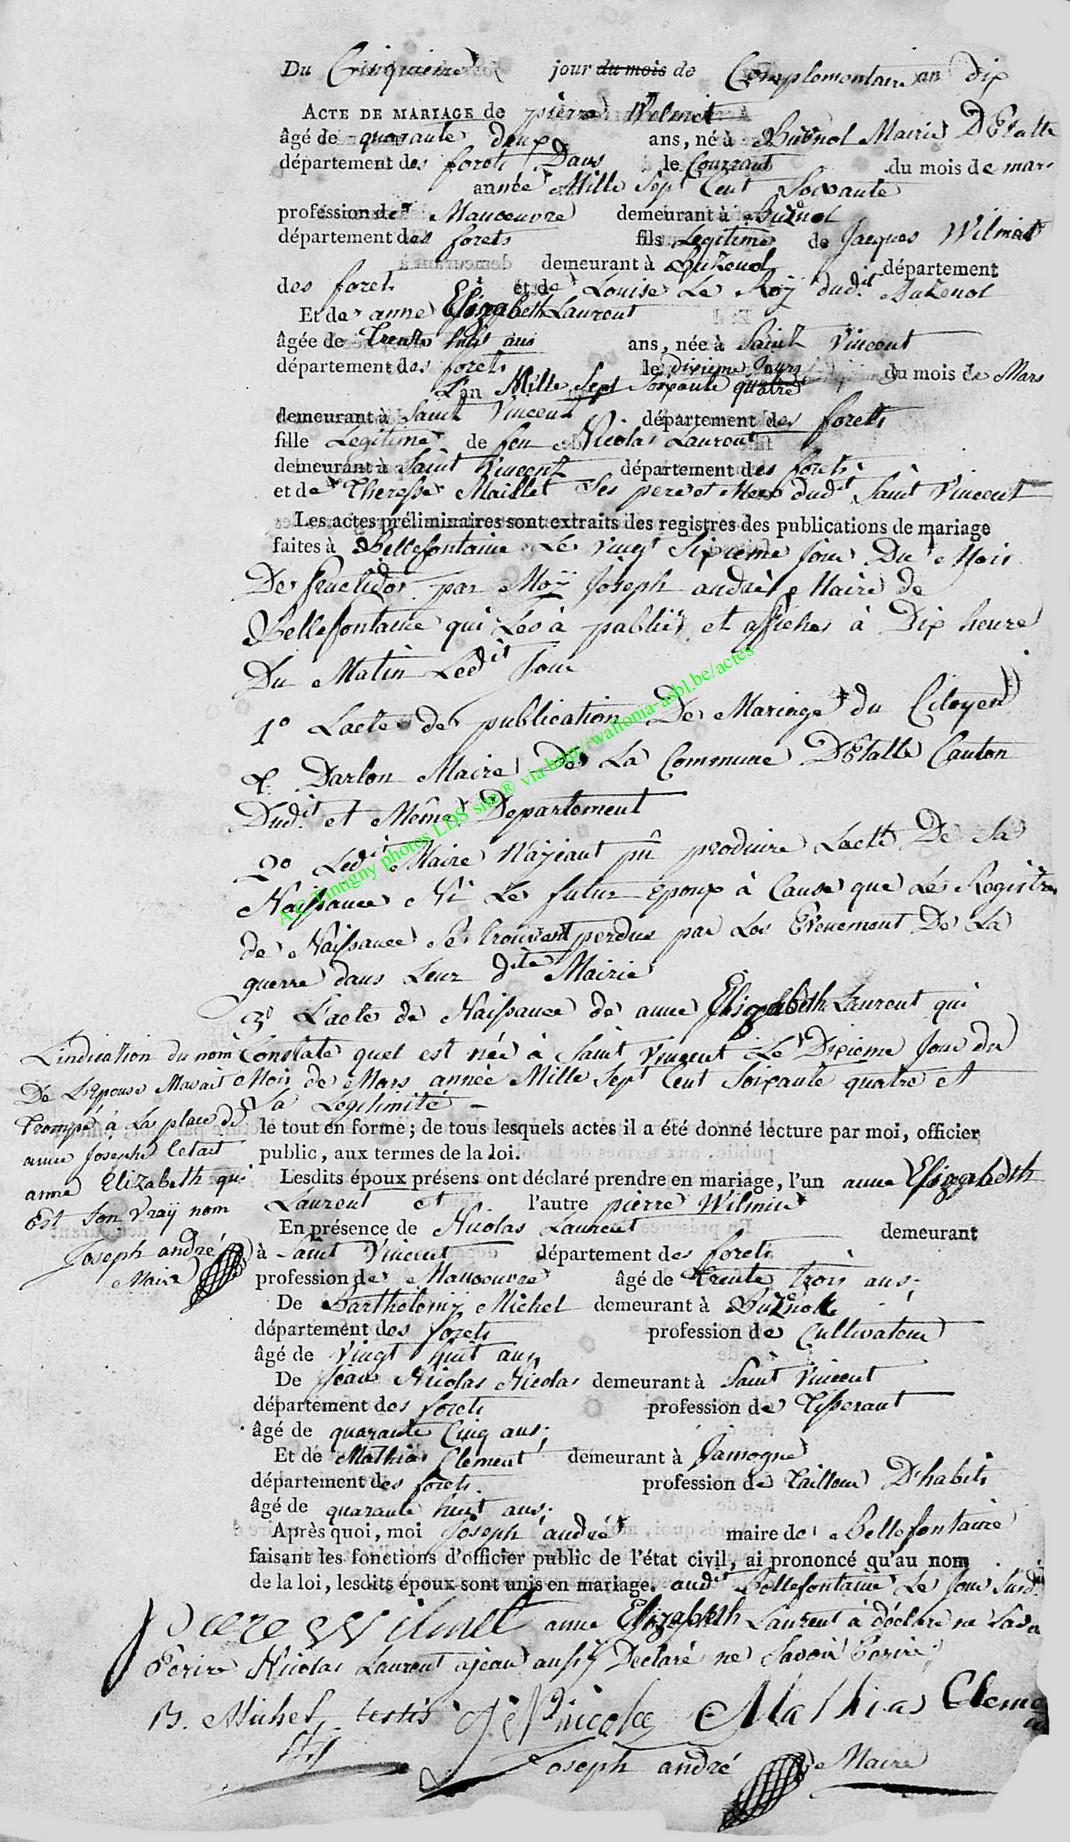 Du Cinquieme jour du mois de Complementaire an dix
ACTE DE MARIAGE de pierre Wilmet
âgé de quarante deux ans, né à Buznol Mairie DEtalle
département des forets Dans le Courrant du mois de mars
année Mille Sept Cent Soixante
profession de Manoeuvre demeurant à Buznol
département des forets fils Legitime de Jacques Wilmet
demeurant à Buzenol département
des forets et de Louise Le Roÿ dudit Buzenol
Et de anne Elizabeth Laurent
âgée de Trente huit ans ans, née à Saint Vincent
département des forets le dixieme Jours du mois de Mars
L'an Mille Sept Soixante quatre
demeurant à Saint Vincent département des forets
fille Legitime de feu Nicolas Laurent
demeurant à Saint Vincent département des forets
et de Theresse Maillet Ses pere et Mere dudit Saint Vincent
Les actes préliminaires sont extraits des registres des publications de mariage
faites à Bellefontaine Le vingt Sixieme Jour Du Mois
De fructidor par Moÿ Joseph andré Maire de
Bellefontaine qui Les à publiés et affiches à Dix heure
Du Matin Ledit Jour
1º Lacte de publication De Mariage du Citoyen
Darlon Maire de La Commune DEtalle Canton
Dudit et Même Departement
2º Ledit Maire N'ajeant pû produire Lacte De sa
Naissance Ni Le futur Epoux à Cause que Les Registres
de Naissance Se trouvent perdus par Les Evenement De La
guerre dans Leur dite Mairie
3º L'acte de Naissance de anne Elizabeth Laurent qui
Constate quel est née à Saint Vincent Le Dixieme Jour du
Mois de Mars année Mille Sept Cent Soixante quatre et
Sa Legitimité
L'indication du nom
De L'epouse Mavait
trompé à La place de
anne Josephe Cetait
anne Elizabeth qui
Est Son vraÿ nom
Joseph andré
Maire
le tout en forme; de tous lesquels actes il a été donné lecture par moi, officier
public, aux termes de la loi.
Lesdits époux présens ont déclaré prendre en mariage, l'un anne Elizabeth
Laurent et l'autre pierre Wilmet
En présence de Nicolas Laurent demeurant
à Saint Vincent département des forets
profession de Manoeuvre âgé de trente trois ans;
De Barthelemÿ Michel demeurant à Buzenol
département des forets profession de Cultivateur
âgé de vingt huit ans
De Jean Nicolas Nicolas demeurant à Saint Vincent
département des forets profession de Tisserant
âgé de quarante Cinq ans;
Et de Mathias Clement demeurant à Jamogne
département des forets. profession de Tailleur D'habits
âgé de quarante huit ans;
Après quoi, moi Joseph andré maire de Bellefontaine
faisant les fonctions d'officier public de l'état civil, ai prononcé qu'au nom
de la loi, lesdits époux sont unis en mariage. audit Bellefontaine Le Jour Susdit
piere Wilmet anne Elizabeth Laurent à déclaré ne Savoir
Ecrire Nicolas Laurent ajeant aussÿ Declaré ne Savoir Ecrire
B. Michel testis J N nicolas Mathias Cleme
Joseph andré Maire
A.C. Tintigny photos LDS site® via http//wallonia-asbl.be/actes